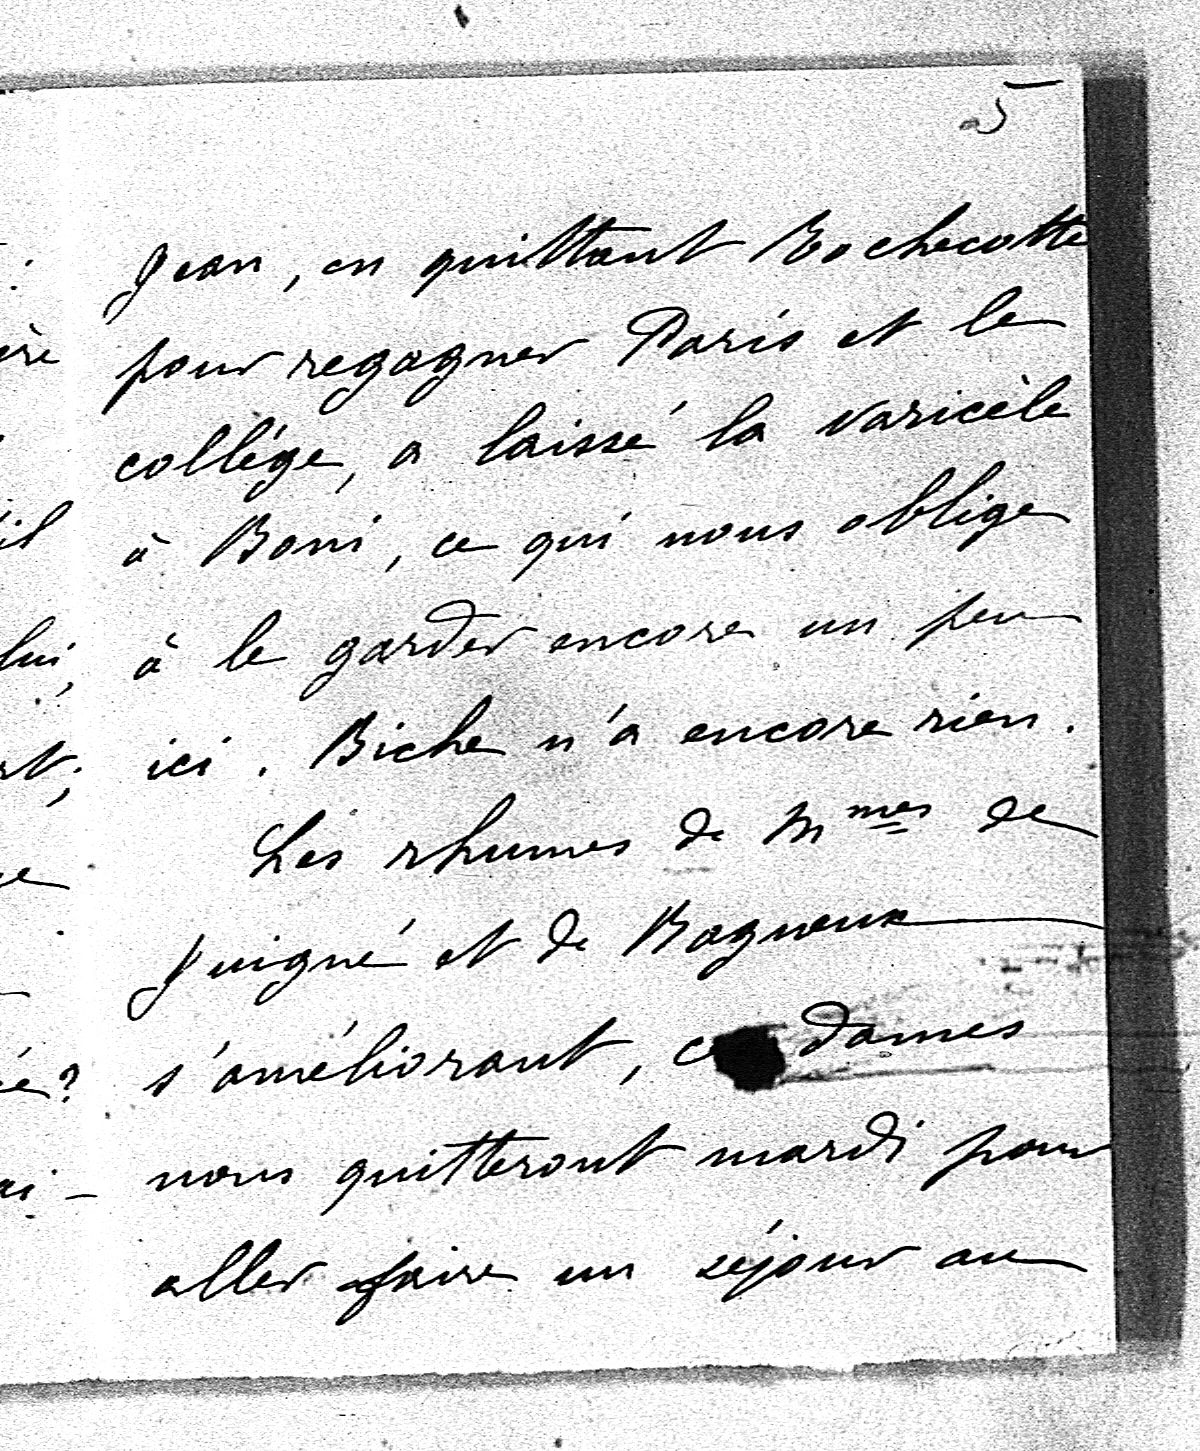 5
Jean, en quittant Rochecotte
pour regagner Paris et le
collége, a laissé la varicèle
à Boni, ce qui nous oblige
à le garder encore un peu
ici. Biche n'a encore rien.
Les rhumes de Mmes de
Juigné et de Bagneux
s'améliorant, dames
nous quitteront mardi pour
aller faire un séjour au